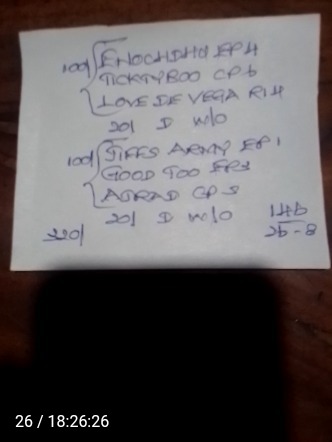 100/ { ENOCHDHU EP4
TICKTYBOO CP6
LOVE DE VEGA R14
20/ D W/O
100/ { JIFFS ARMY EP1
GOOD TOO EP3
ATRAD CP5
20/ D W/O
146
26-8
26 / 18:26:26